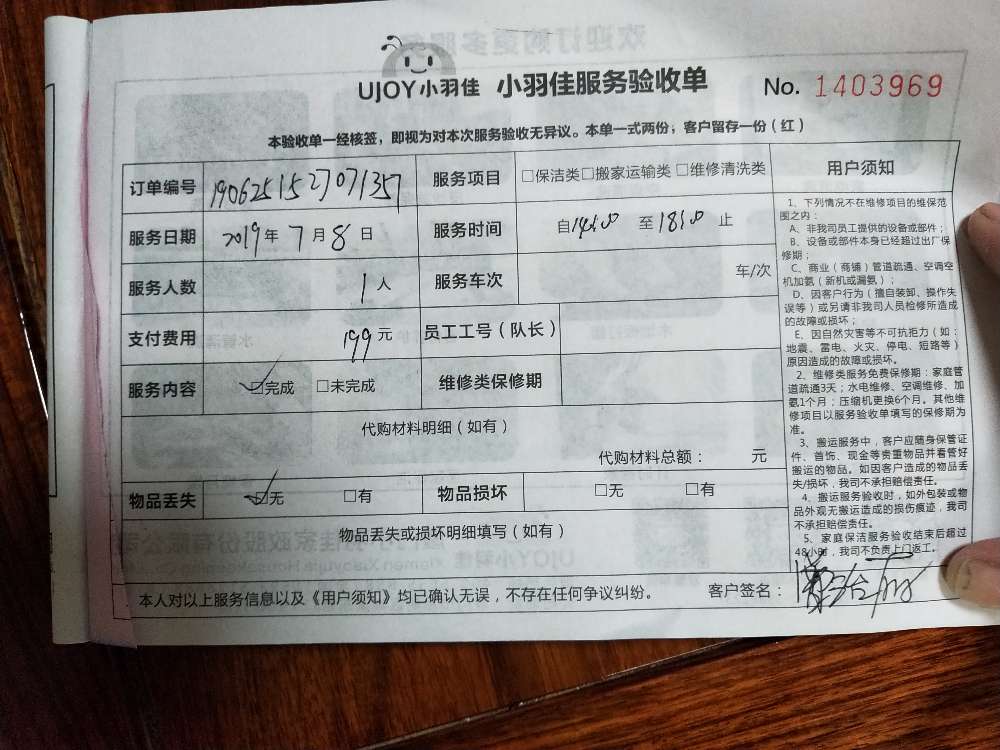 UJOY小羽佳 小羽佳服务验收单 No. 1403969
本验收单一经核签，即视为对本次服务验收无异议。本单一式两份，客户留存一份（红）
订单编号 19062515270​71357 服务项目 □保洁类□搬家运输类□维修清洗类
服务日期 2019年7月8日 服务时间 自14:00 至18:00 止
服务人数 1人 服务车次 车/次
支付费用 199元 员工工号（队长）
服务内容 ☑完成 □未完成 维修类保修期
代购材料明细（如有）
代购材料总额： 元
物品丢失 ☑无 □有 物品损坏 □无 □有
物品丢失或损坏明细填写（如有）
本人对以上服务信息以及《用户须知》均已确认无误，不存在任何争议纠纷。 客户签名：
用户须知
1、下列情况不在维修项目的维保范
围之内：
A、非我司员工提供的设备或部件；
B、设备或部件本身已经超过出厂保
修期；
C、商业（商铺）管道疏通、空调空
机加氨（新机或漏氨）；
D、因客户行为（擅自装卸、操作失
误等）或另请非我司人员检修所造成
的故障或损坏；
E、因自然灾害等不可抗拒力（如：
地震、雷电、火灾、停电、短路等）
原因造成的故障或损坏。
2、维修类服务免费保修期：家庭管
道疏通3天；水电维修、空调维修、加
氨1个月；压缩机更换6个月。其他维
修项目以服务验收单填写的保修期为
准。
3、搬运服务中，客户应随身保管证
件、首饰、现金等贵重物品并看管好
搬运的物品。如因客户造成的物品丢
失/损坏，我司不承担赔偿责任。
4、搬运服务验收时，如外包装或物
品外观无搬运造成的损伤痕迹，我司
不承担赔偿责任。
5、家庭保洁服务验收结束后超过
48小时，我司不负责上门返工。